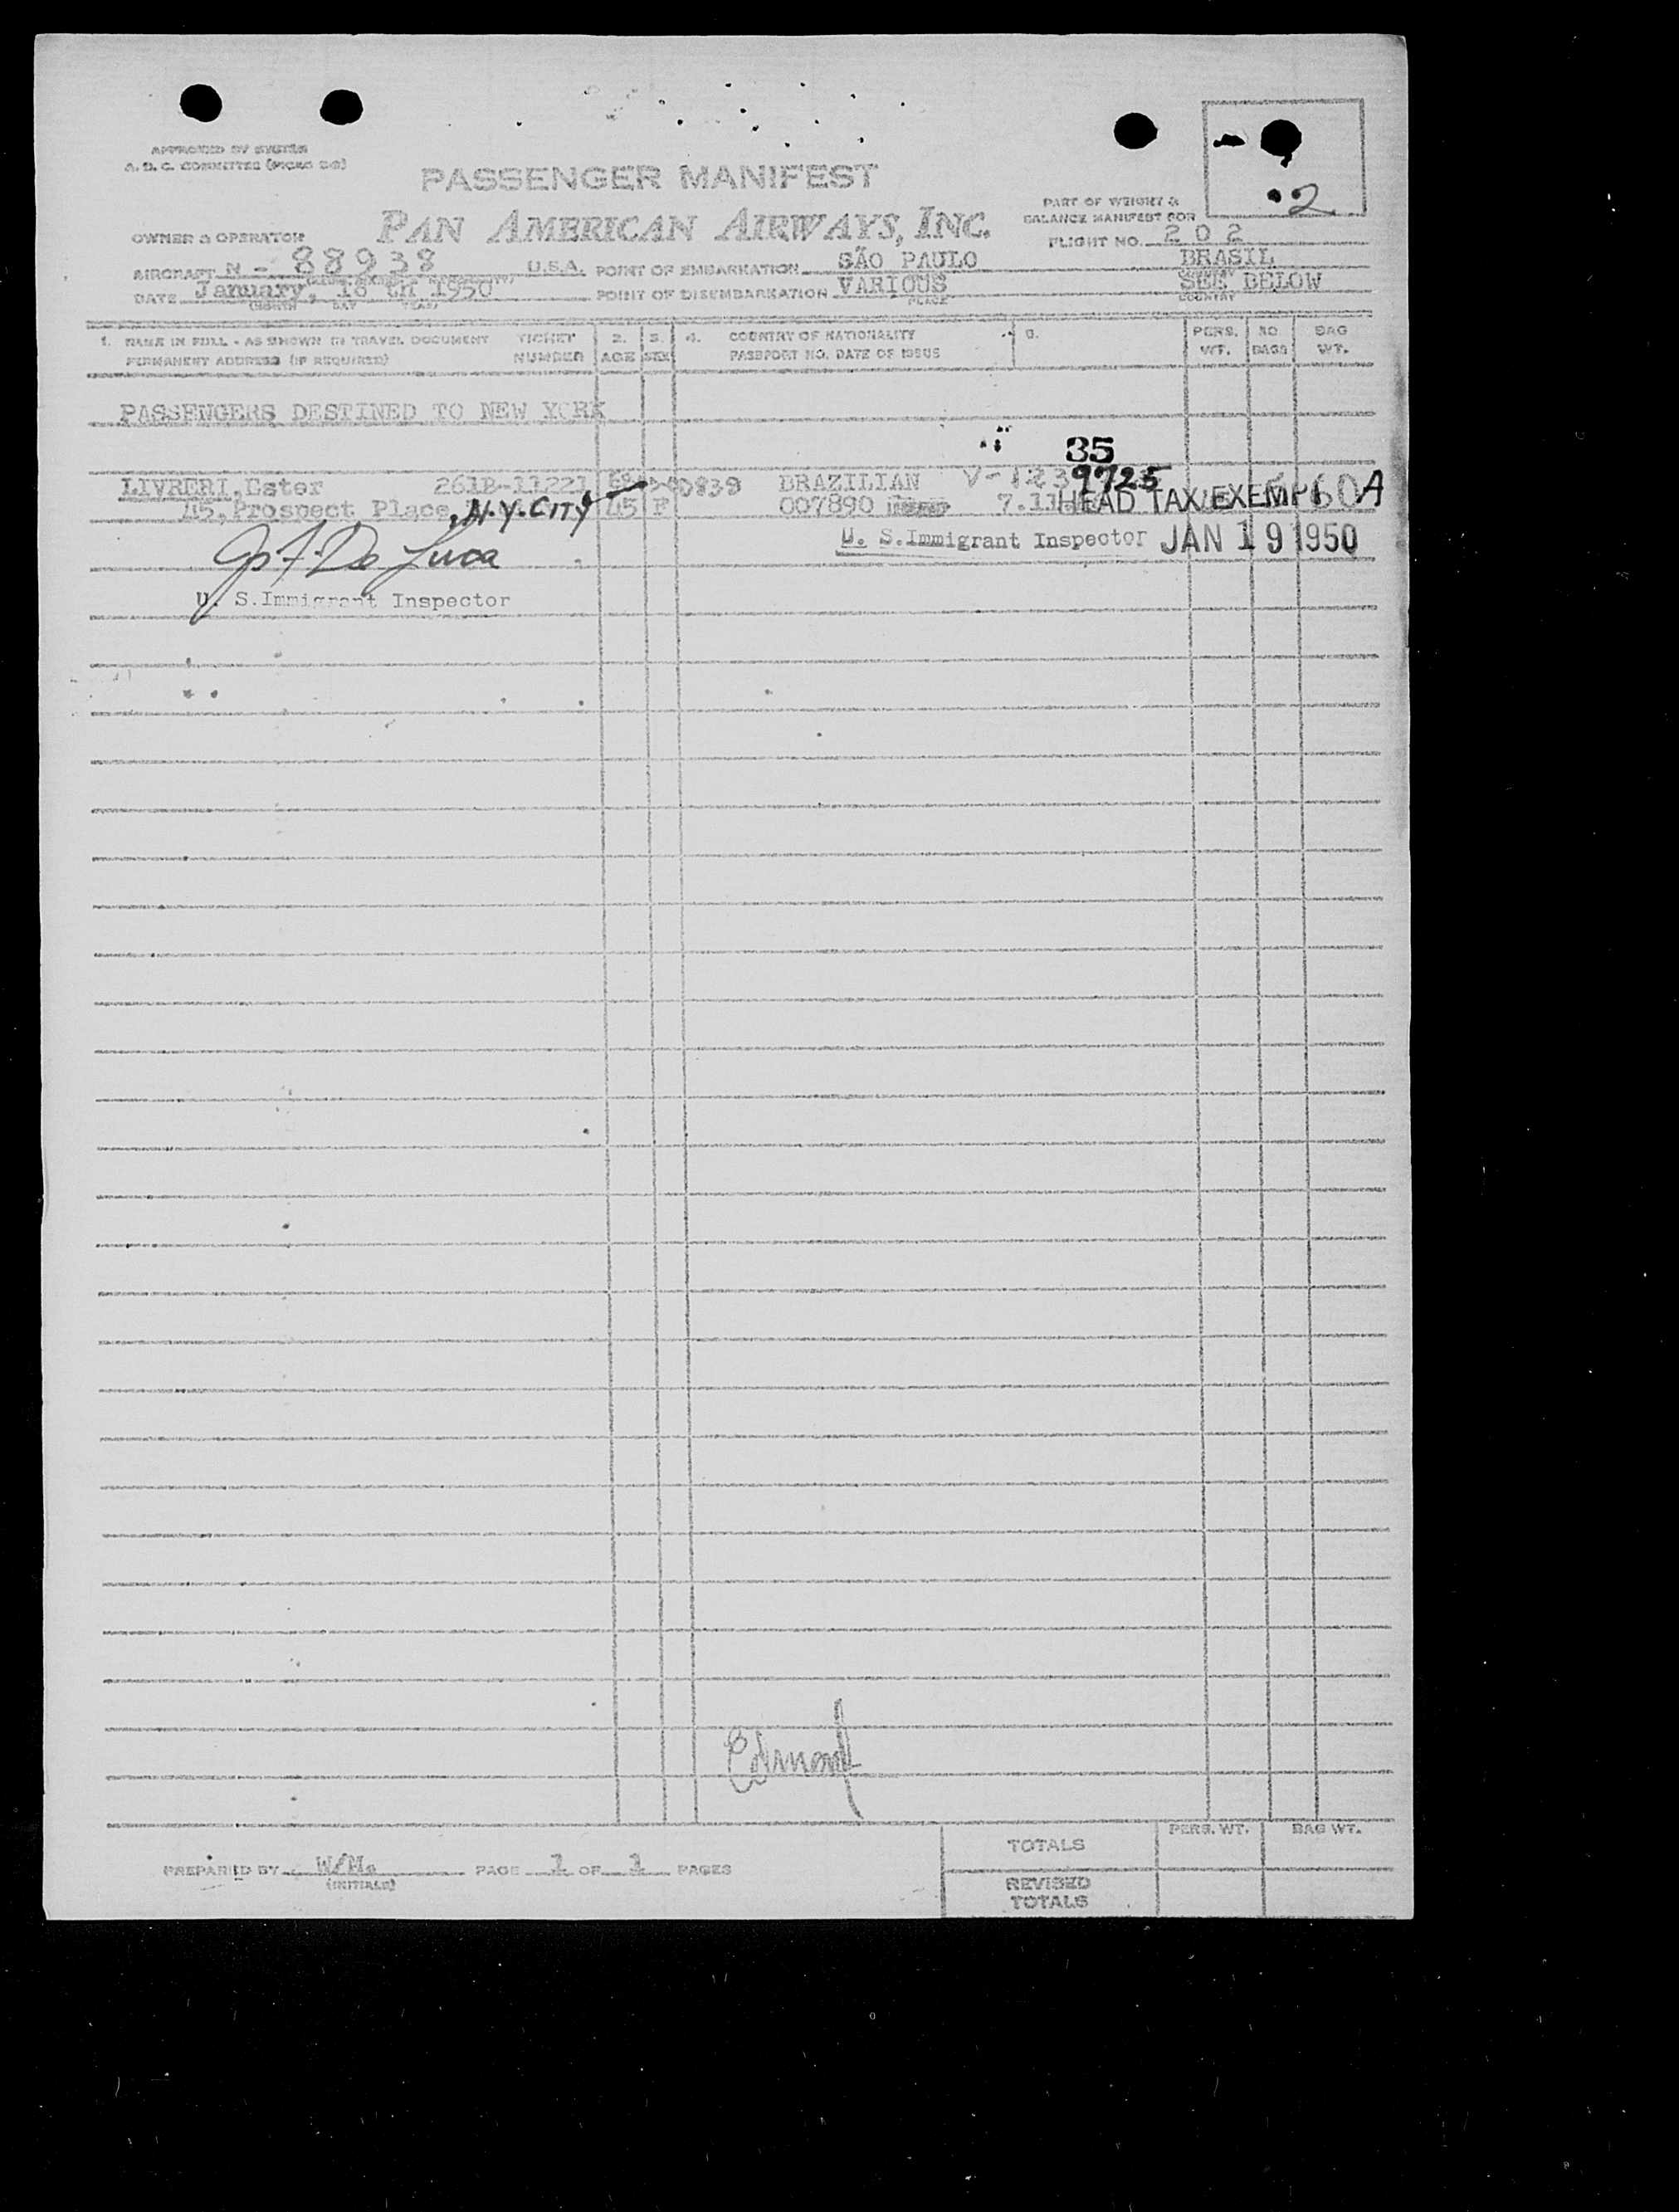 APPROVED BY SYSTEM
A.D.C. COMMITTEE
PASSENGER MANIFEST
PART OF WEIGHT &
BALANCE MANIFEST FOR
2
OWNER & OPERATOR PAN AMERICAN AIRWAYS, INC.
FLIGHT NO. 202
AIRCRAFT N - 88938 U.S.A. POINT OF EMBARKATION SÃO PAULO BRASIL
DATE January, 18 th 1950 POINT OF DISEMBARKATION VARIOUS SEE BELOW
(MONTH DAY YEAR) PLACE COUNTRY
1. NAME IN FULL - AS SHOWN IN TRAVEL DOCUMENT TICKET 2. 3. 4. COUNTRY OF NATIONALITY PERS. NO. BAG
PERMANENT ADDRESS (IF REQUIRED) NUMBER AGE SEX PASSPORT NO. DATE OF ISSUE WT. BAGS WT.
PASSENGERS DESTINED TO NEW YORK
35
LIVRERI, Ester 261B-11221 BRAZILIAN V-123 9725
45, Prospect Place, N.Y. CITY 45 F 007890 7.11 HEAD TAX EXEMPT 60A
U. S. Immigrant Inspector JAN 19 1950
Jos F. De Luca
U. S. Immigrant Inspector
PREPARED BY W/Ms PAGE 1 OF 1 PAGES
(INITIALS)
TOTALS PERS. WT. BAG WT.
REVISED
TOTALS